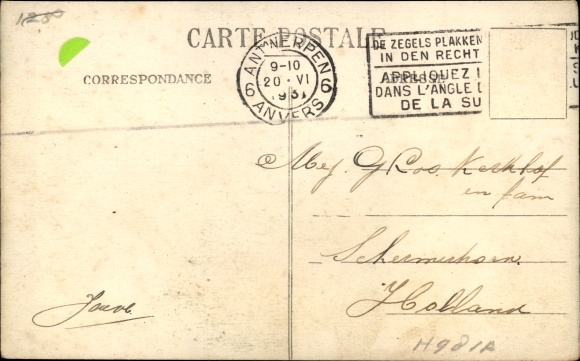 1250
CARTE POSTALE
CORRESPONDANCE
ADRESSE
6 ANTWERPEN 6
9-10
20 · VI
1931
ANVERS
DE ZEGELS PLAKKEN
IN DEN RECHT
APPLIQUEZ
DANS L'ANGLE D
DE LA SU
Mej. G Roo Kerkhof
en fam
Schermerhorn.
Holland
H981A